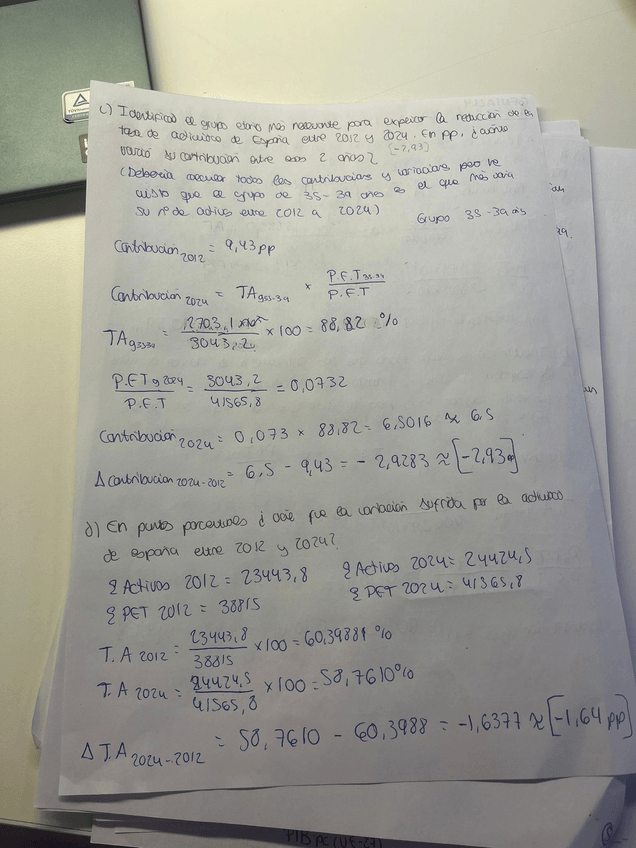 c) Identificad el grupo etario más relevante para explicar la reducción de la
tasa de actividad de España entre 2012 y 2024. En pp, ¿cuánto
varió su contribución entre esos 2 años?
[-2,93]
(Debería calcular todas las contribuciones y variaciones pero he
visto que el grupo de 35-39 años es el que más varía
su nº de activos entre 2012 a 2024)
Grupo 35-39 años
Contribución 2012 = 9,43 pp
Contribución 2024 = TA g35-39 × P.E.T 35-39 / P.E.T
TA g3539 = 2703,1 / 3043,2 × 100 = 88,82 %
P.E.T g 2024 / P.E.T = 3043,2 / 41565,8 = 0,0732
Contribución 2024 = 0,073 × 88,82 = 6,5016 ≈ 6,5
Δ contribucion 2024-2012 = 6,5 - 9,43 = - 2,9283 ≈ [-2,93]
d) En puntos porcentuales ¿ cuál fue la variación sufrida por la actividad
de españa entre 2012 y 2024?
Σ Activos 2012 = 23443,8
Σ Activos 2024 = 24424,5
Σ PET 2012 = 38815
Σ PET 2024 = 41565,8
T.A 2012 = 23443,8 / 38815 × 100 = 60,39881 %
T.A 2024 = 24424,5 / 41565,8 × 100 = 58,7610%
Δ T.A 2024-2012 = 58,7610 - 60,3988 = -1,6377 ≈ [-1,64 pp]